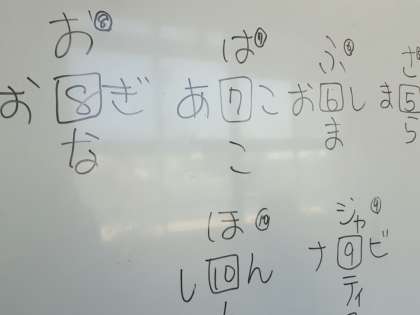 お⑧
お 8 ぎ
な
は⑦
あ 7 こ
こ
ふ⑥
お 6 し
ま
さ
ま 5
ら
ほ⑩
し 10 ん
ジャ⑨
ナ 9 ビ
ティ